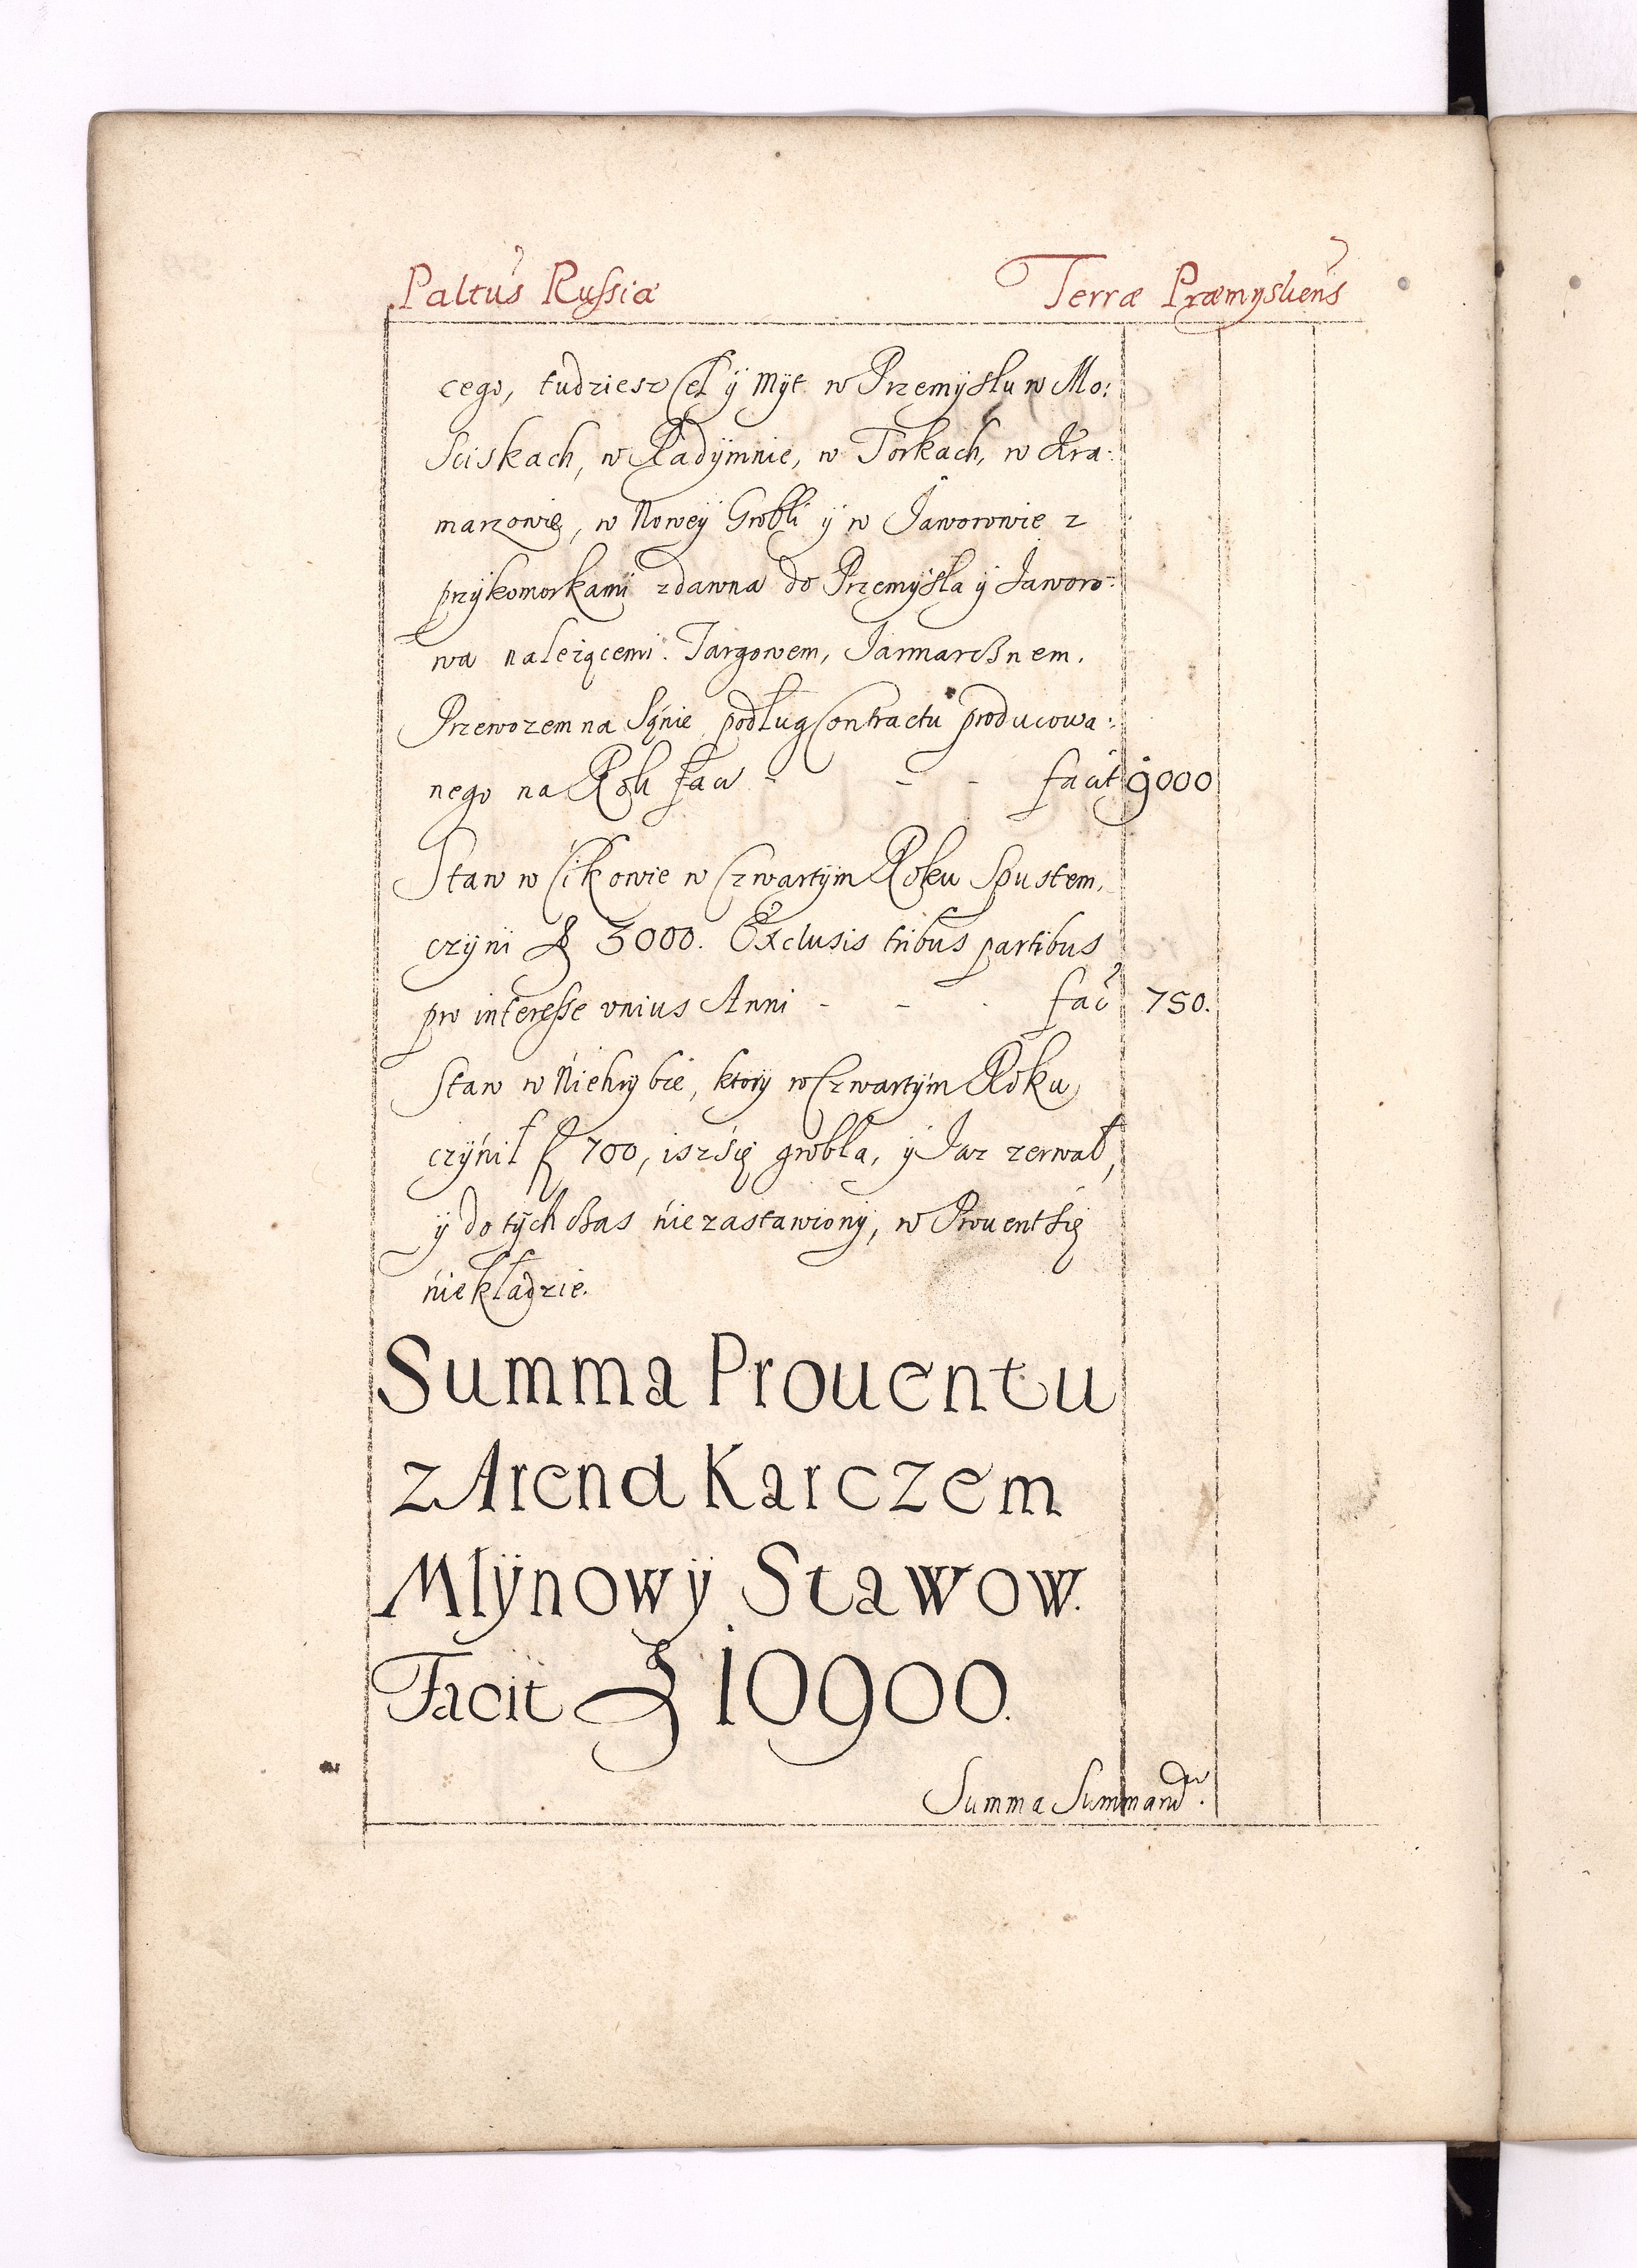 Paltus Russiæ Terræ Præmysliens
cego, tudziesz Ceł ÿ Mÿt w Przemÿślu w Mo:
sciskach, w Radÿmnie, w Torkach, w Kra:
marzowię, w Nowey Grobli ÿ w Jaworowie z
przÿkomorkami zdawna do Przemÿśla ÿ Jaworo:
wa należącemi. Targowem, Jarmarcznem.
Przewozem na Sąnie podług Contractu producowa:
nego na Rok - - - facit 9000
Staw w Cikowie w Czwartÿm Roku Spustem,
czÿni fl 3000. Exclusis tribus partibus
pro interesse vnius Anni - - - faci 750.
Staw w Niehrybie, ktorÿ w Czwartÿm Roku
czÿnił fl 700, isz się grobla, ÿ Jaz zerwał,
ÿ do tÿch czas nie zastawiony, w Prouent się
nie kładzie.
Summa Prouentu
z Arend Karczem
Mlÿnow ÿ Stawow.
Facit fl 10900.
Summa Summarum